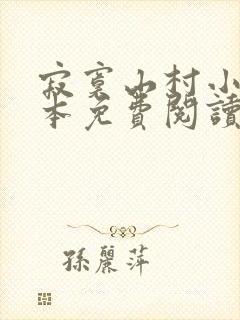 寂寞山村小
本免費閱讀
孫麗萍